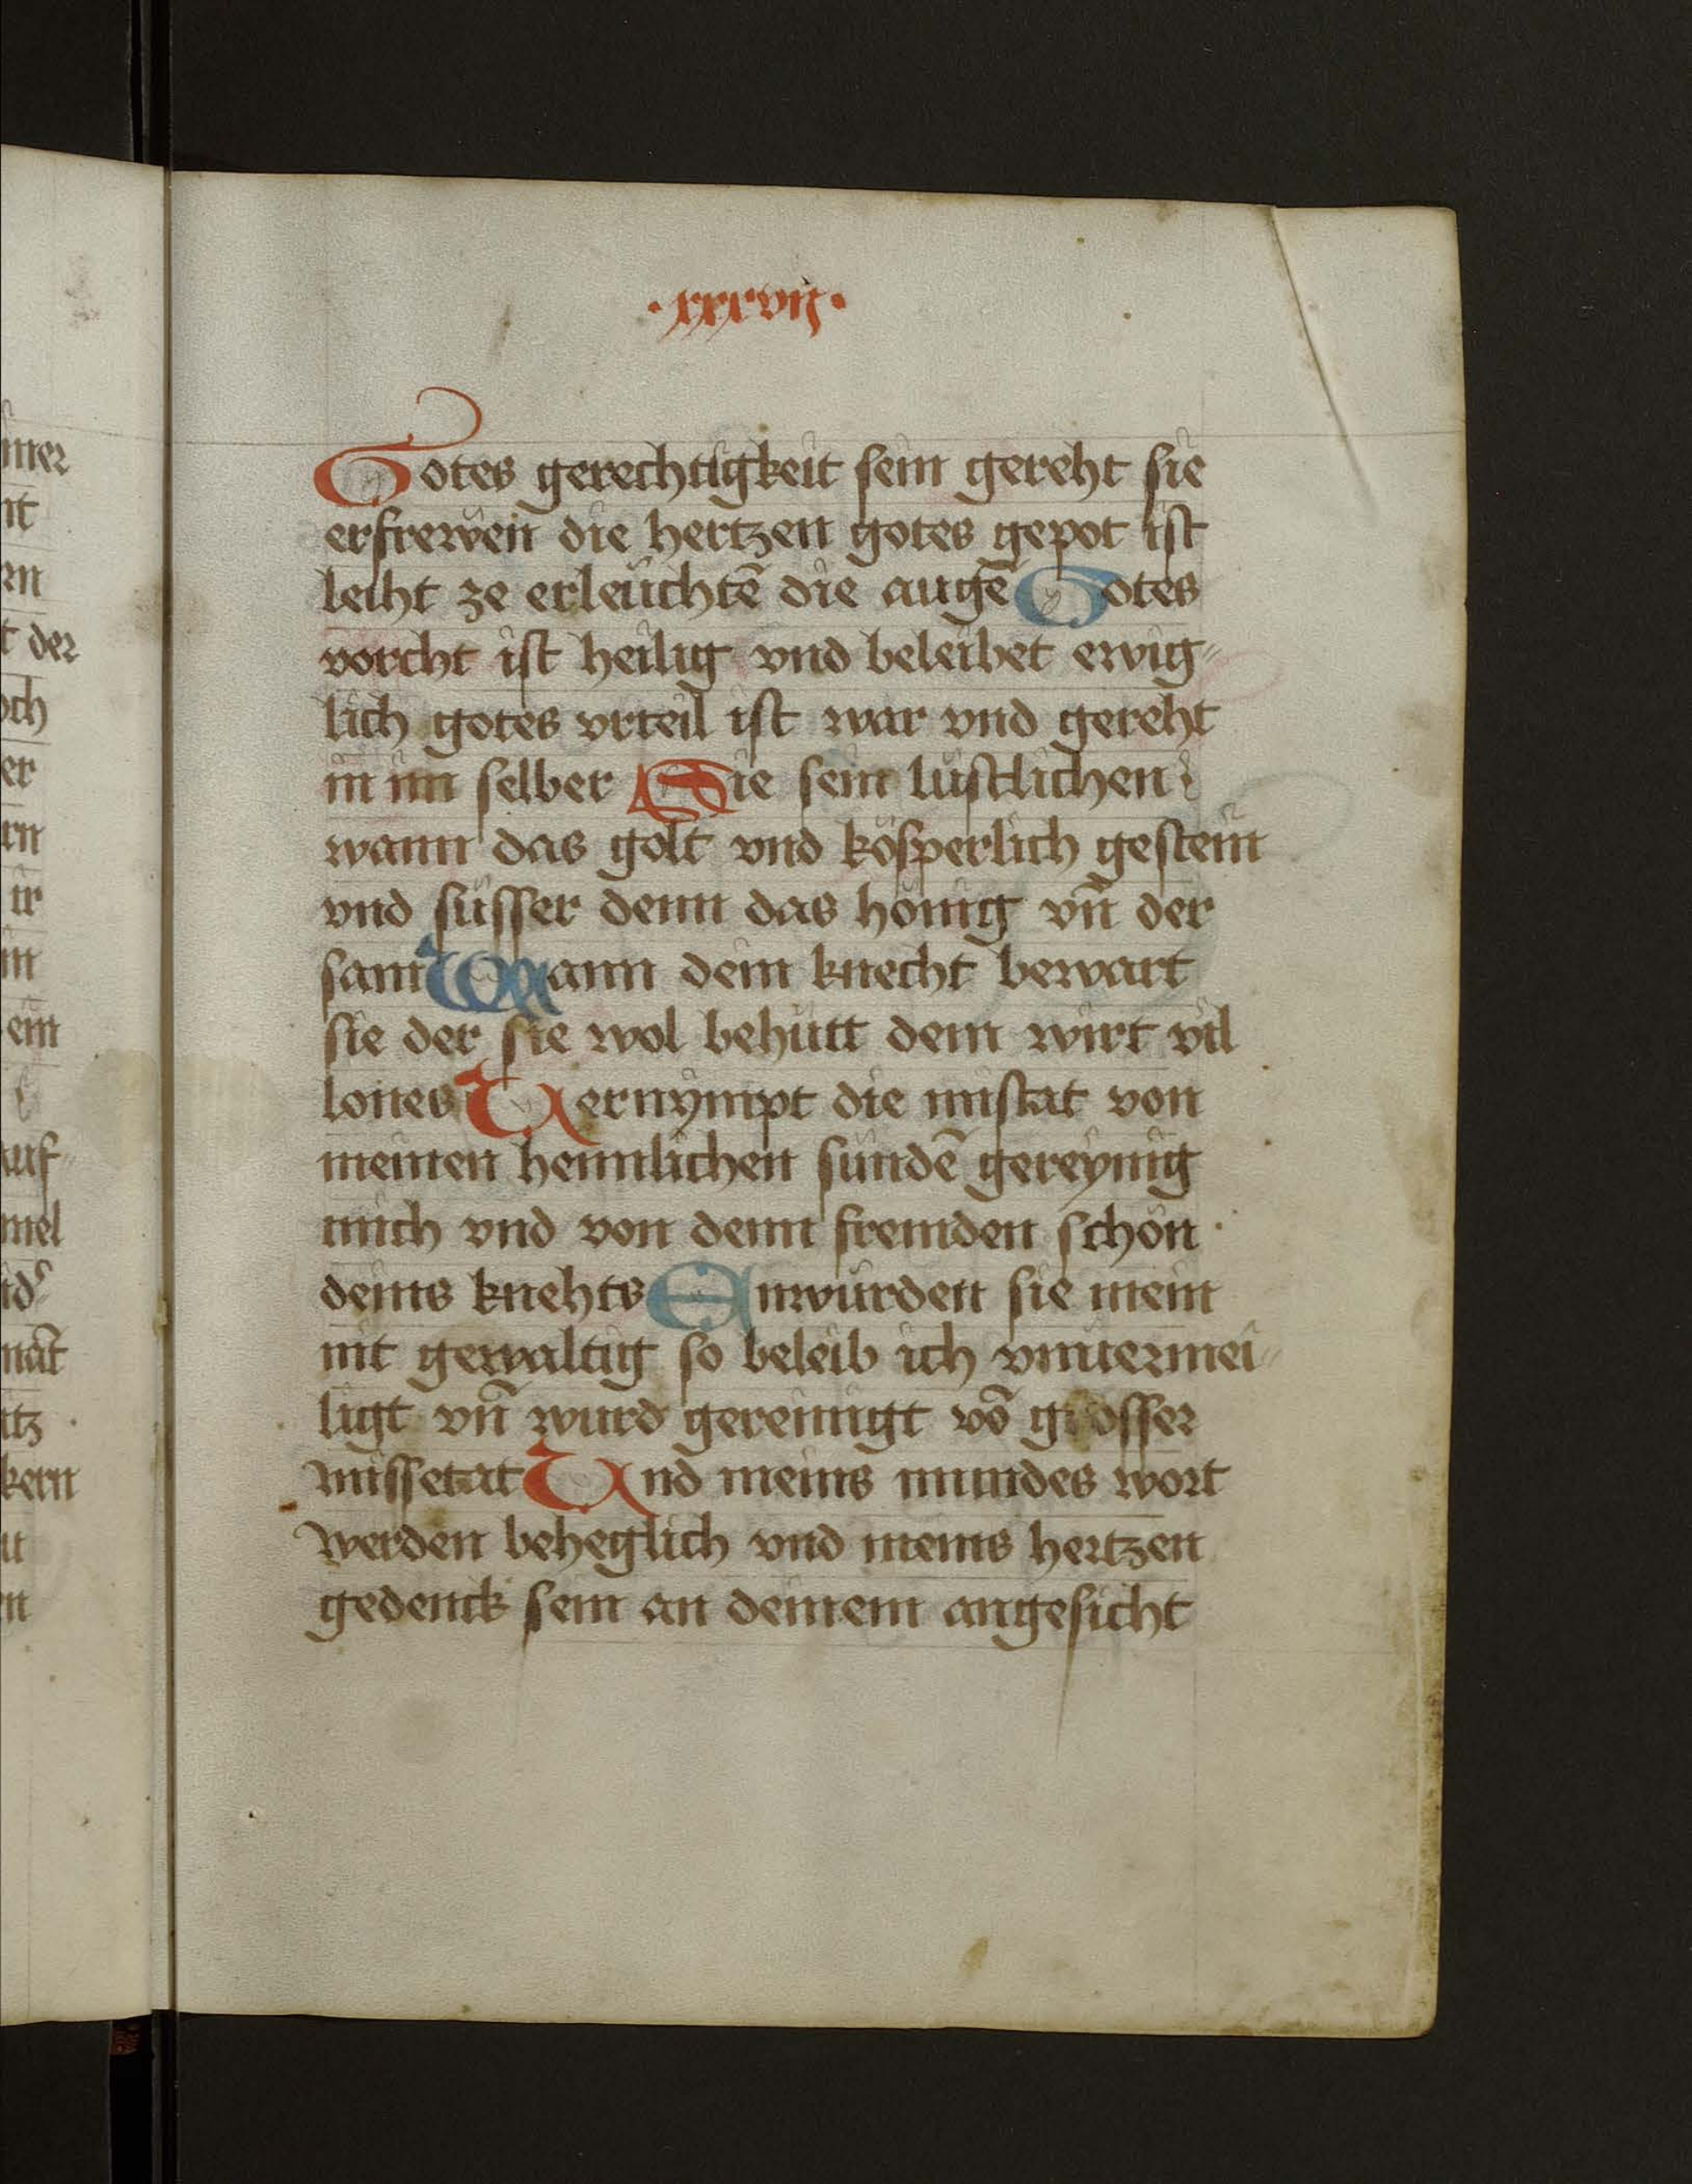 ·xxxvij·
Gotes gerechtigkeit sein gereht sie
erfrewen die hertzen gotes gepot ist
leiht ze erleuchtē die augē Gotes
vorcht ist heilig vnd beleibet ewig⸗
lich gotes vrteil ist war vnd gereht
in im selber Sie sein lüstlichen
wann das golt vnd kösperlich gestein
vnd süsser denn das hönig vn̄ der
sam Wann dein knecht bewart
sie der sie wol behütt dem wirt vil
lones Vernÿmpt die mistat von
meinen heimlichen sündē gereÿnig
mich vnd von denn fremden schön
deins knehts Anwürden sie mein
nit gewaltig so beleib ich vnuermei⸗
ligt vn̄ wurd gereinigt vō grosser
missetat Vnd meins mundes wort
werden beheglich vnd meins hertzen
gedenck sein an deinem angesicht